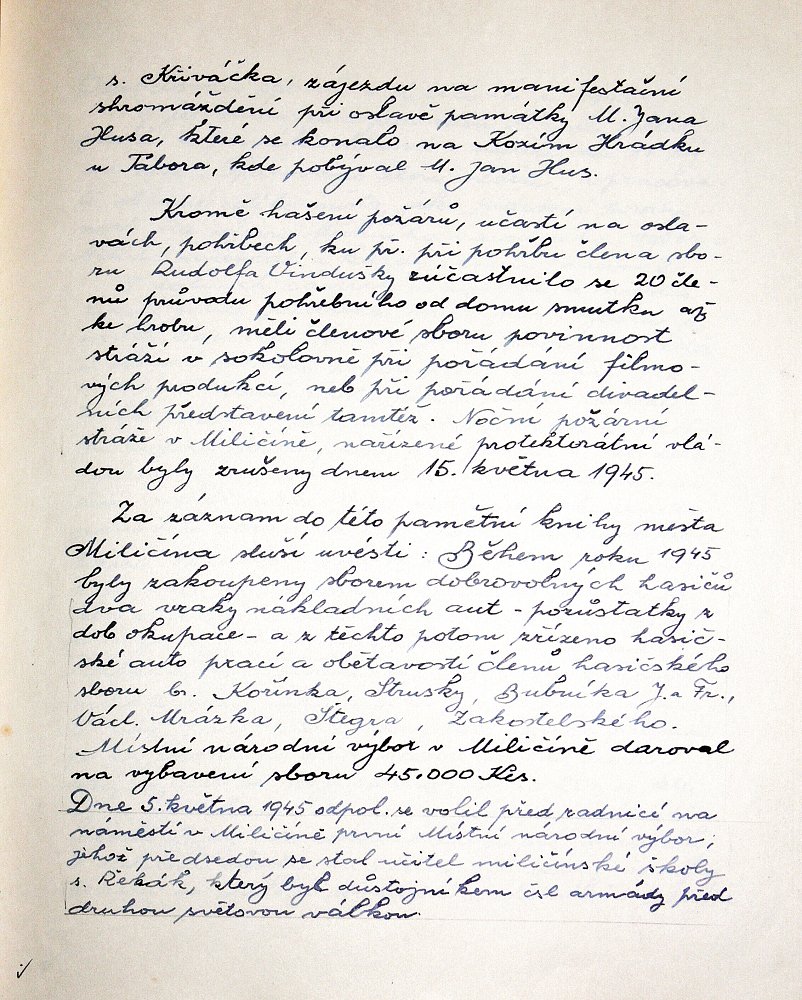 s. Křiváčka, zájezdu na manifestační
shromáždění při oslavě památky M. Jana
Husa, které se konalo na Kozím Hrádku
u Tábora, kde pobýval M. Jan Hus.
Kromě hašení požárů, učastí na osla-
vách, pohřbech, ku př. při pohřbu člena sbo-
ru Rudolfa Vindušky zúčastnilo se 20 čle-
nů průvodu pohřebního od domu smutku až
ke hrobu, měli členové sboru povinnost
stráží v sokolovně při pořádání filmo-
vých produkcí, neb při pořádání divadel-
ních představení tamtéž. Noční požární
stráže v Miličíně, nařízené protektorátní vlá-
dou byly zrušeny dnem 15. května 1945.
Za záznam do této pamětní knihy města
Miličína sluší uvésti: Během roku 1945
byly zakoupeny sborem dobrovolných hasičů
dva vraky nákladních aut - pozůstatky z
dob okupace - a z těchto potom zřízeno hasič-
ské auto prací a obětavostí členů hasičského
sboru br. Kořínka, Strusky, Bubníka J. a Fr.,
Václ. Mrázka, Štegra, Zakostelského.
Místní národní výbor v Miličíně daroval
na vybavení sboru 45.000 Kčs.
Dne 5. května 1945 odpol. se volil před radnicí na
náměstí v Miličíně první Místní národní výbor;
jehož předsedou se stal učitel miličínské školy
s. Řekák, který byl důstojníkem čsl armády před
druhou světovou válkou.